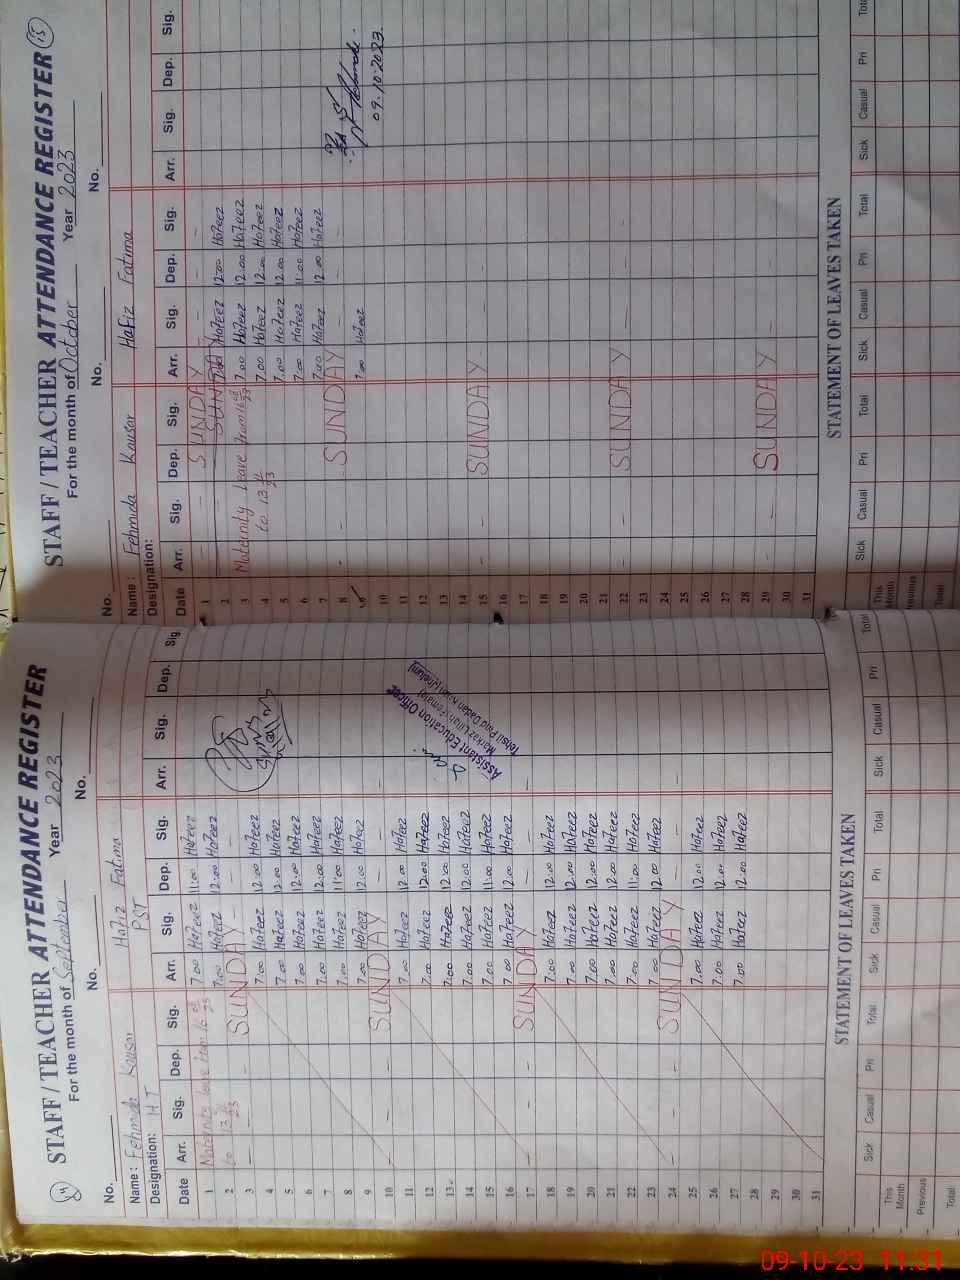 14 STAFF / TEACHER ATTENDANCE REGISTER
For the month of September Year 2023
No. No. No.
Name: Fehmida Kausar Hafiz Fatima
Designation: H T PST
Date Arr. Sig. Dep. Sig. Arr. Sig. Dep. Sig. Arr. Sig. Dep. Sig
1 Maternity leave from 16 7.00 Hafeez 11:00 Hafeez
2 to 13 11/23 7.00 Hafeez 12:00 Hafeez
3 SUNDAY
4 7.00 Hafeez 12:00 Hafeez
5 7.00 Hafeez 12:00 Hafeez
6 7.00 Hafeez 12:00 Hafeez
7 7.00 Hafeez 12:00 Hafeez
8 7.00 Hafeez 11:00 Hafeez
9 7.00 Hafeez 12:00 Hafeez
10 SUNDAY
11 7.00 Hafeez 12.00 Hafeez
12 7.00 Hafeez 12:00 Hafeez
13 7:00 Hafeez 12:00 Hafeez
14 7.00 Hafeez 12:00 Hafeez
15 7.00 Hafeez 11:00 Hafeez
16 7.00 Hafeez 12:00 Hafeez
17 SUNDAY
18 7:00 Hafeez 12:00 Hafeez
19 7.00 Hafeez 12:00 Hafeez
20 7.00 Hafeez 12:00 Hafeez
21 7.00 Hafeez 12:00 Hafeez
22 7.00 Hafeez 11:00 Hafeez
23 7.00 Hafeez 12.00 Hafeez
24 SUNDAY
25 7.00 Hafeez 12:00 Hafeez
26 7.00 Hafeez 12:00 Hafeez
27 7.00 Hafeez 12:00 Hafeez
28
29
30
31
Assistant Education Officer
Markaz Lillah (Female)
Tehsil Pind Dadan Khan (Jhelum)
STATEMENT OF LEAVES TAKEN
Sick Casual Pri Total Sick Casual Pri Total Sick Casual Pri Total
This Month
Previous
Total
STAFF / TEACHER ATTENDANCE REGISTER 15
For the month of October Year 2023
No. No. No.
Name: Fehmida Kausar Hafiz Fatima
Designation:
Date Arr. Sig. Dep. Sig. Arr. Sig. Dep. Sig. Arr. Sig. Dep. Sig.
1 SUNDAY
2 SUNDAY 7.00 Hafeez 12:00 Hafeez
3 Maternity Leave from 16 7.00 Hafeez 12.00 Hafeez
4 to 13 11/23 7.00 Hafeez 12:00 Hafeez
5 7.00 Hafeez 12.00 Hafeez
6 7.00 Hafeez 11:00 Hafeez
7 7.00 Hafeez 12.00 Hafeez
8 SUNDAY
9 7.00 Hafeez
10
11
12
13
14
15 SUNDAY
16
17
18
19
20
21
22 SUNDAY
23
24
25
26
27
28
29 SUNDAY
30
31
09.10.2023.
STATEMENT OF LEAVES TAKEN
Sick Casual Pri Total Sick Casual Pri Total Sick Casual Pri Total
This Month
Previous
Total
09-10-23 11:31